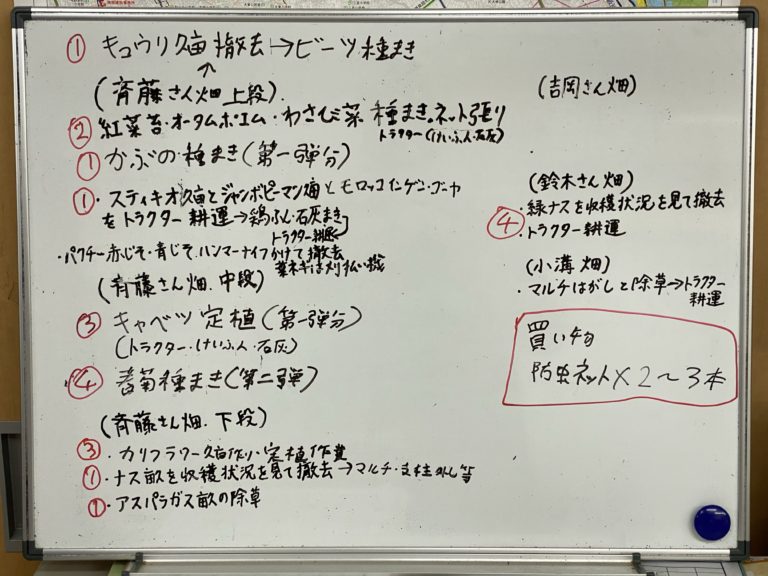 ① キュウリ畝撤去→ビーツ種まき
(斉藤さん畑 上段)
② 紅菜苔・オータムポエム・わさび菜 種まき。ネット張り
トラクター(けいふん・石灰)
① かぶの種まき(第一弾分)
① ・スティキオ畝とジャンボピーマン畝とモロッコインゲン・ゴーヤ
をトラクター耕運→鶏ふん・石灰まき
トラクター耕運
・パクチー・赤じそ・青じそ、ハンマーナイフかけて撤去
葉ネギは刈払い機
(斉藤さん畑、中段)
③ キャベツ定植(第一弾分)
(トラクター・けいふん・石灰)
④ 春菊種まき(第二弾)
(斉藤さん畑、下段)
③ ・カリフラワー畝作り・定植作業
① ・ナス畝を収穫状況を見て撤去→マルチ・支柱外し等
① ・アスパラガス畝の除草
(吉岡さん畑)
(鈴木さん畑)
④ ・緑ナスを収穫状況を見て撤去
・トラクター耕運
(小溝 畑)
・マルチはがしと除草→トラクター
耕運
買い物
防虫ネット×2〜3本